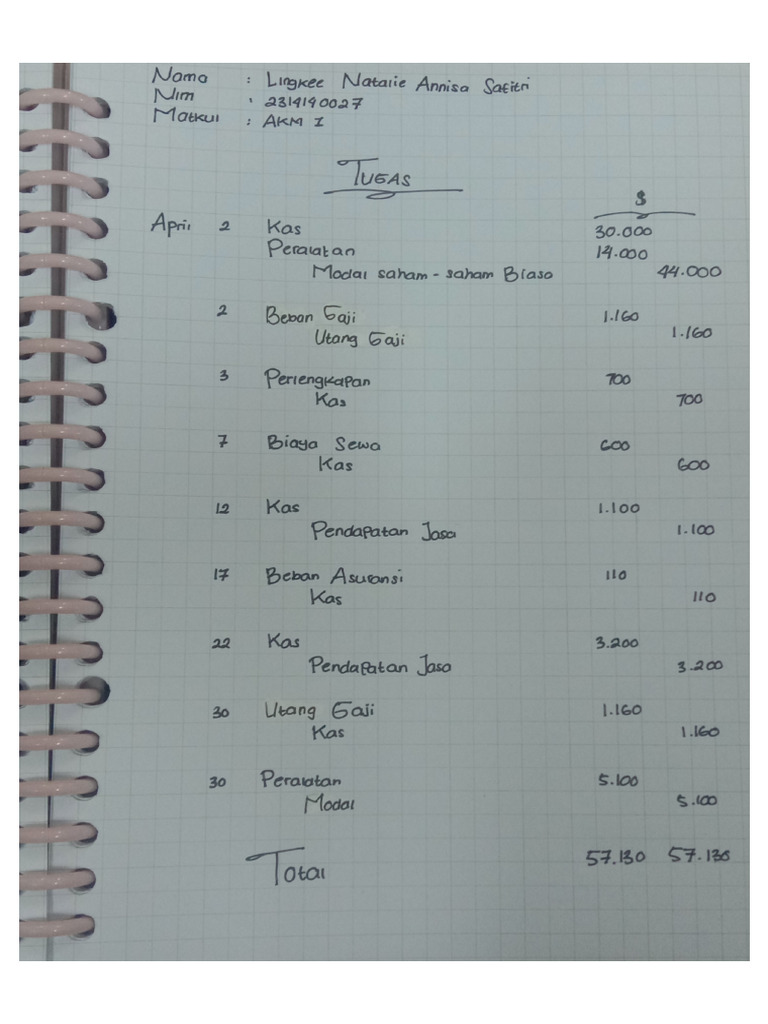 Nama : Lingkee Natalie Annisa Safitri
Nim : 2314190027
Matkul : AKM 1
TUGAS
$
April 2 Kas 30.000
Peralatan 14.000
Modal saham - saham Biasa 44.000
2 Beban Gaji 1.160
Utang Gaji 1.160
3 Perlengkapan 700
Kas 700
7 Biaya Sewa 600
Kas 600
12 Kas 1.100
Pendapatan Jasa 1.100
17 Beban Asuransi 110
Kas 110
22 Kas 3.200
Pendapatan Jasa 3.200
30 Utang Gaji 1.160
Kas 1.160
30 Peralatan 5.100
Modal 5.100
Total 57.130 57.130